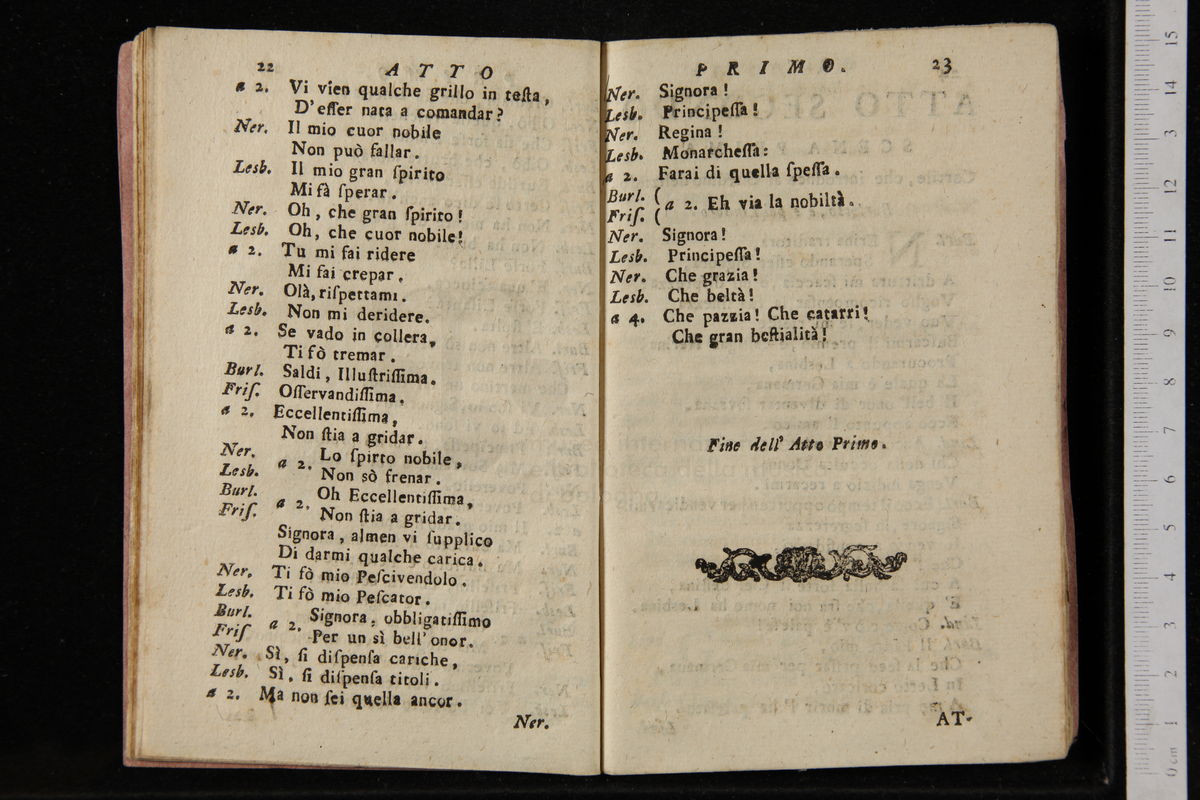 22 ATTO
a 2. Vi vien qualche grillo in teſta,
D'eſſer nata a comandar?
Ner. Il mio cuor nobile
Non può fallar.
Lesb. Il mio gran ſpirito
Mi fà ſperar.
Ner. Oh, che gran ſpirito!
Lesb. Oh, che cuor nobile!
a 2. Tu mi fai ridere
Mi fai crepar.
Ner. Olà, riſpettami.
Lesb. Non mi deridere.
a 2. Se vado in collera,
Ti fò tremar.
Burl. Saldi, Illuſtriſſima.
Friſ. Oſſervandiſſima,
a 2. Eccellentiſſima,
Non ſtia a gridar.
Ner. Lesb. a 2. Lo ſpirto nobile,
Non sò frenar.
Burl. Friſ. a 2. Oh Eccellentiſſima,
Non ſtia a gridar.
Signora, almen vi ſupplico
Di darmi qualche carica.
Ner. Ti fò mio Peſcivendolo.
Lesb. Ti fò mio Peſcator.
Burl. Friſ a 2. Signora, obbligatiſſimo
Per un sì bell'onor.
Ner. Sì, ſi diſpenſa cariche,
Lesb. Sì, ſi diſpenſa titoli.
a 2. Ma non ſei quella ancor.
Ner.
PRIMO. 23
Ner. Signora!
Lesb. Principeſſa!
Ner. Regina!
Lesb. Monarcheſſa:
a 2. Farai di quella ſpeſſa.
Burl. (
Friſ. ( a 2. Eh via la nobiltà.
Ner. Signora!
Lesb. Principeſſa!
Ner. Che grazia!
Lesb. Che beltà!
a 4. Che pazzia! Che catarri!
Che gran beſtialità!
Fine dell' Atto Primo.
AT-
0 cm 1 2 3 4 5 6 7 8 9 10 11 12 13 14 15